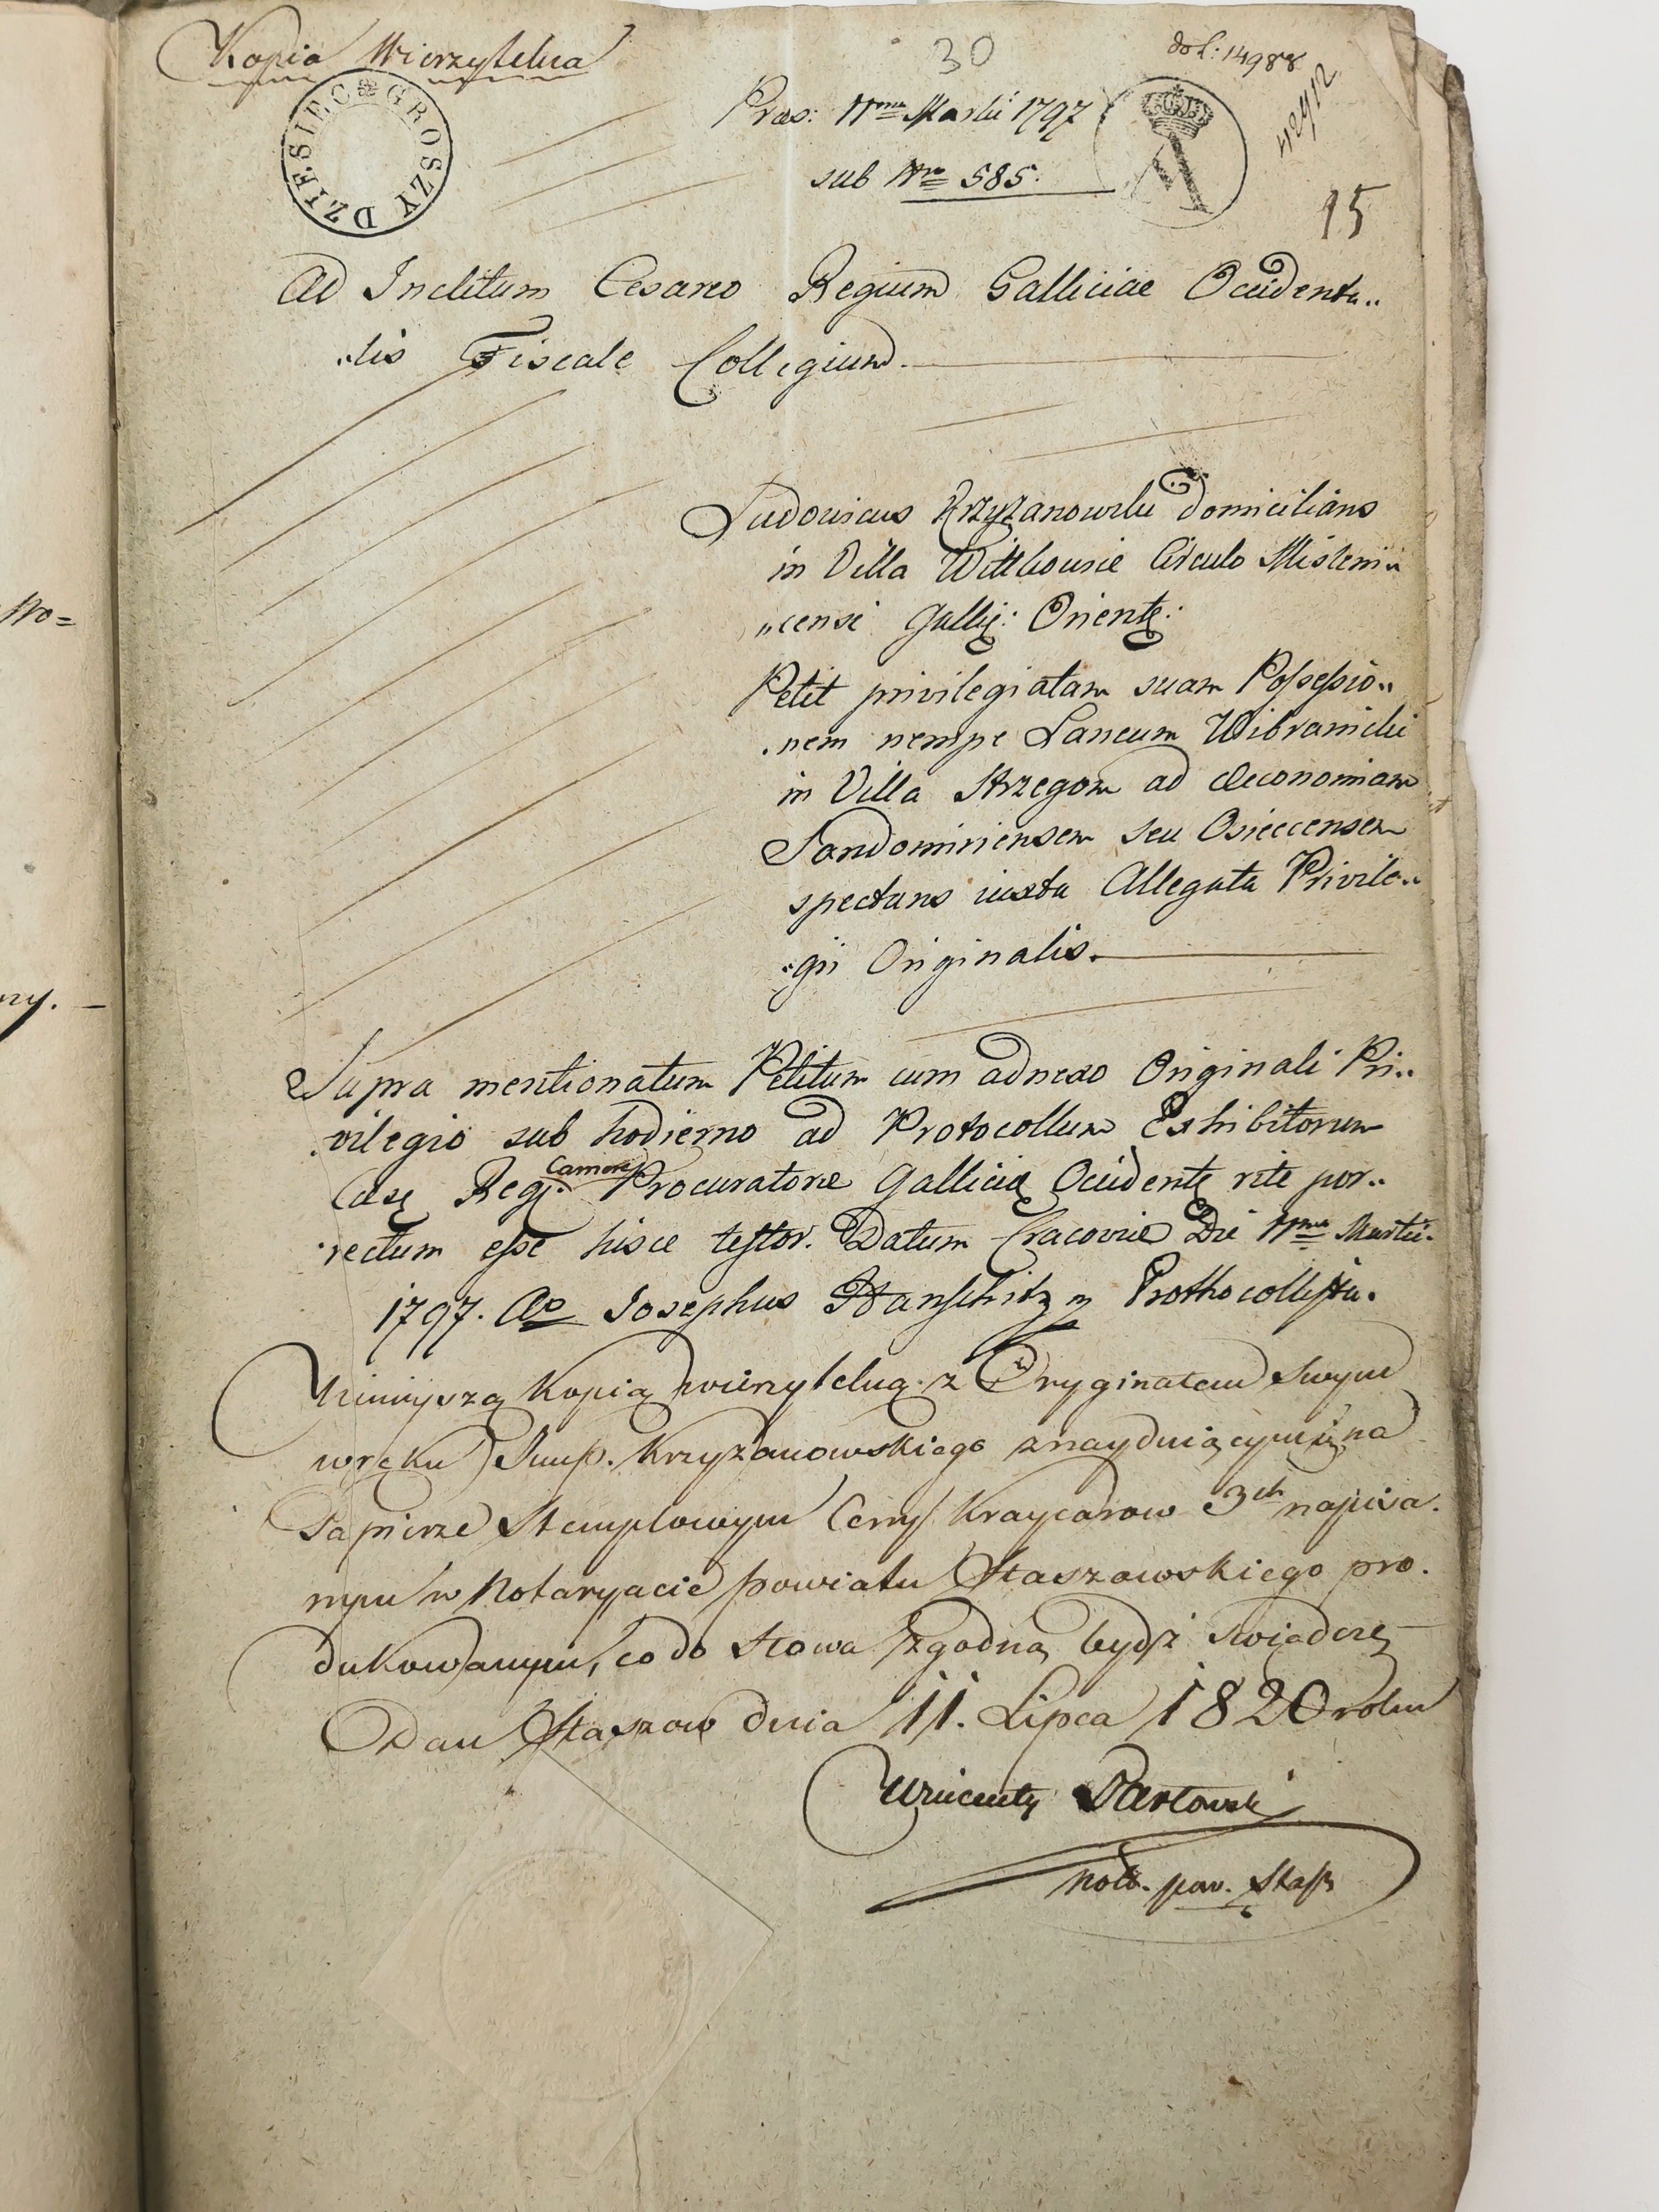 Kopia Wierzytelna
30
dol: 14988
DZIESIEC GROSZY
Præs: 11ma Martii 1797
sub Nro 585.
15
Ad Inclitum Cesareo Regium Galliciae Occidenta„
„lis Fiscale Collegium.
Ludovicus Krzyzanowski domicilians
in Villa Wittkowie Circulo Misleni„
„censi Gallię: Orientę:
Petit privilegiatam suam Possessio„
„nem nempe Laneum Wibranicki
in Villa Strzegom ad Oeconomiam
Sandomiriensem seu Osieccensem
spectans iuxta Allegata Privile„
„gii Originalis.
Supra mentionatum Petitum cum adnexo Originali Pri„
„vilegio sub hodierno ad Protocollum Exhibitorum
Cæsę Regę. Camerę Procuratoræ Gallicię Occidentę rite por„
„rectum esse hisce testor. Datum Cracoviæ Die 11ma Martii
1797. Ao Josephus Prothocollista.
Ninieyszą Kopią wierzytelną z Oryginałem swym
w ręku Jmp. Krzyżanowskiego znayduiącym, na
Papierze Stemplowym Ceny Kraycarow 3ch napisa„
nym w Notaryacie powiatu Staszowskiego pro„
dukowanym, co do słowa zgodną bydź świadczę
Dan w Staszow dnia 11. Lipca 1820 roku
Wincenty
Not. pow. Stasz
No=
ny. —